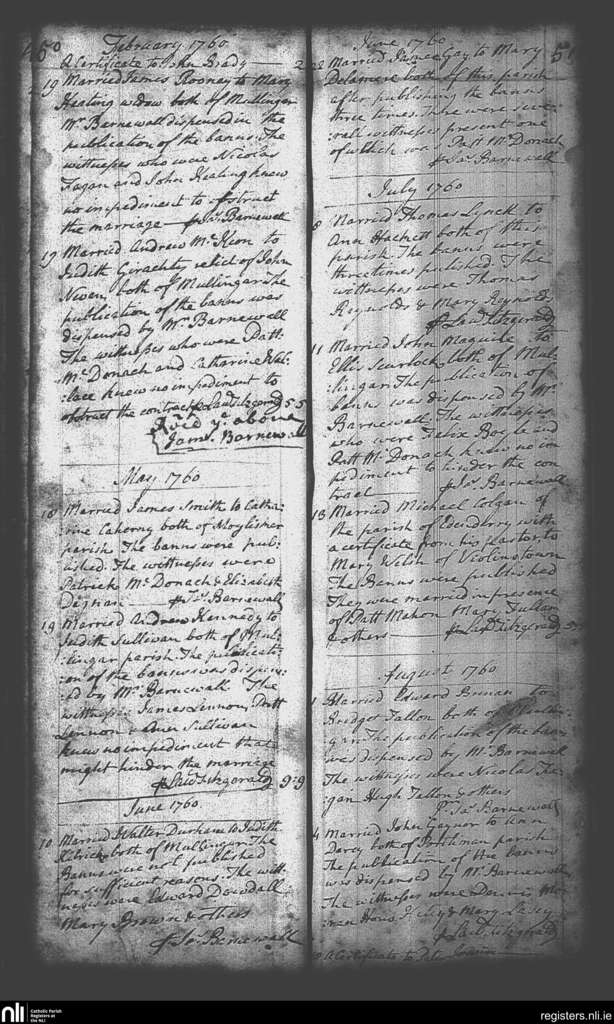 50
February 1760
A Certificate to John Brady
19 Married James Rooney to Mary
Keating widow both of Mullingar
Mr Barnewall dispensed in the
publication of the banns. The
wittnesses who were Nicolas
Fagan and John Kealing knew
no impediment to obstruct
the marriage Jas. Barnewall
19 Married Andrew McKeon to
Judith Giraghty relict of John
both of Mullingar. The
publication of the banns was
dispensed by Mr Barnewall
The wittnesses who were Patt:
McDonach and Catharine Wal:
lace knew no impediment to
obstruct the contract Laur Fitzgerald 5:5
above
James Barnewall
May 1760
18 Married James Smith to Catha:
rine Caherny both of
parish. The banns were pub:
lished. The wittnesses were
Patrick McDonach & Elizabeth
Deignan Jas. Barnewall
19 Married Andrew Kennedy to
Judith Sullivan both of Mul:
lingar parish. The publicati:
on of the banns was dispen:
ed by Mr Barnewall. The
wittnesses James Lennon, Patt
Lennon & Sullivan
knew no impediment that
might hinder the marriage
Laur Fitzgerald 9:9
June 1760
10 Married Walter Durham to Judith
Kilrick both of Mullingar. The
Banns were not published
for sufficient reasons. The witt:
nesses were Edward Dowdall
Mary Brown & others
Jas. Barnewall
June 1760
51
22 Married James Gay to Mary
Delamere both of this parish
after publishing the banns
three times. There were seve:
rall wittnesses present one
of which was Patt McDonach
Jas. Barnewall
July 1760
8 Married Thomas Lynch to
Ann Hackett both of this
parish. The banns were
three times published. The
wittnesses were Thomas
Reynolds & Mary Reynolds
Laur Fitzgerald
11 Married John Maguire to
Ellis Scurlock both of Mul:
lingar. The publication of
banns was dispensed by Mr
Barnewall. The wittnesses
who were Felix Boyle and
Patt McDonach knew no im
pediment to hinder the con
tract Jas. Barnewall
18 Married Michael Colgan of
the parish of Edenderry with
a certificate from his pastor to
Mary Welsh of Violinstown
The Banns were published
They were married in presence
of Patt Mahon Mary Fullam
& others Laur Fitzgerald
August 1760
1 Married Edward to
Bridget Fallon both of Mullin:
gar. The publication of the banns
was dispensed by Mr Barnewall
The wittnesses were Nicolas Fa:
gan Hugh Fallon & others
Jas. Barnewall
4 Married John Gaynor to Ann
Darcy both of parish
The publication of the banns
was dispensed by Mr Barnewall
The wittnesses were Dennis Mo:
ran & Mary Casey
Laur Fitzgerald
A Certificate to
nli
Catholic Parish
Registers at
the NLI
registers.nli.ie